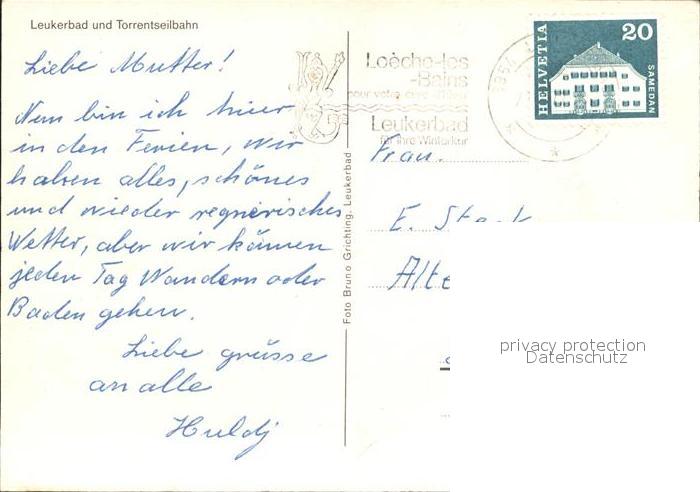 Leukerbad und Torrentseilbahn
Liebe Mutter!
Nun bin ich hier
in den Ferien, wir
haben alles, schönes
und wieder regnerisches
Wetter, aber wir können
jeden Tag Wandern oder
Baden gehen.
Liebe grüsse
an alle
Huldj
Foto Bruno Grichting, Leukerbad
Loèche-les
-Bains
pour votre cure
Leukerbad
für Ihre Winterkur
3954
HELVETIA
20
SAMEDAN
Frau.
E.
privacy protection
Datenschutz